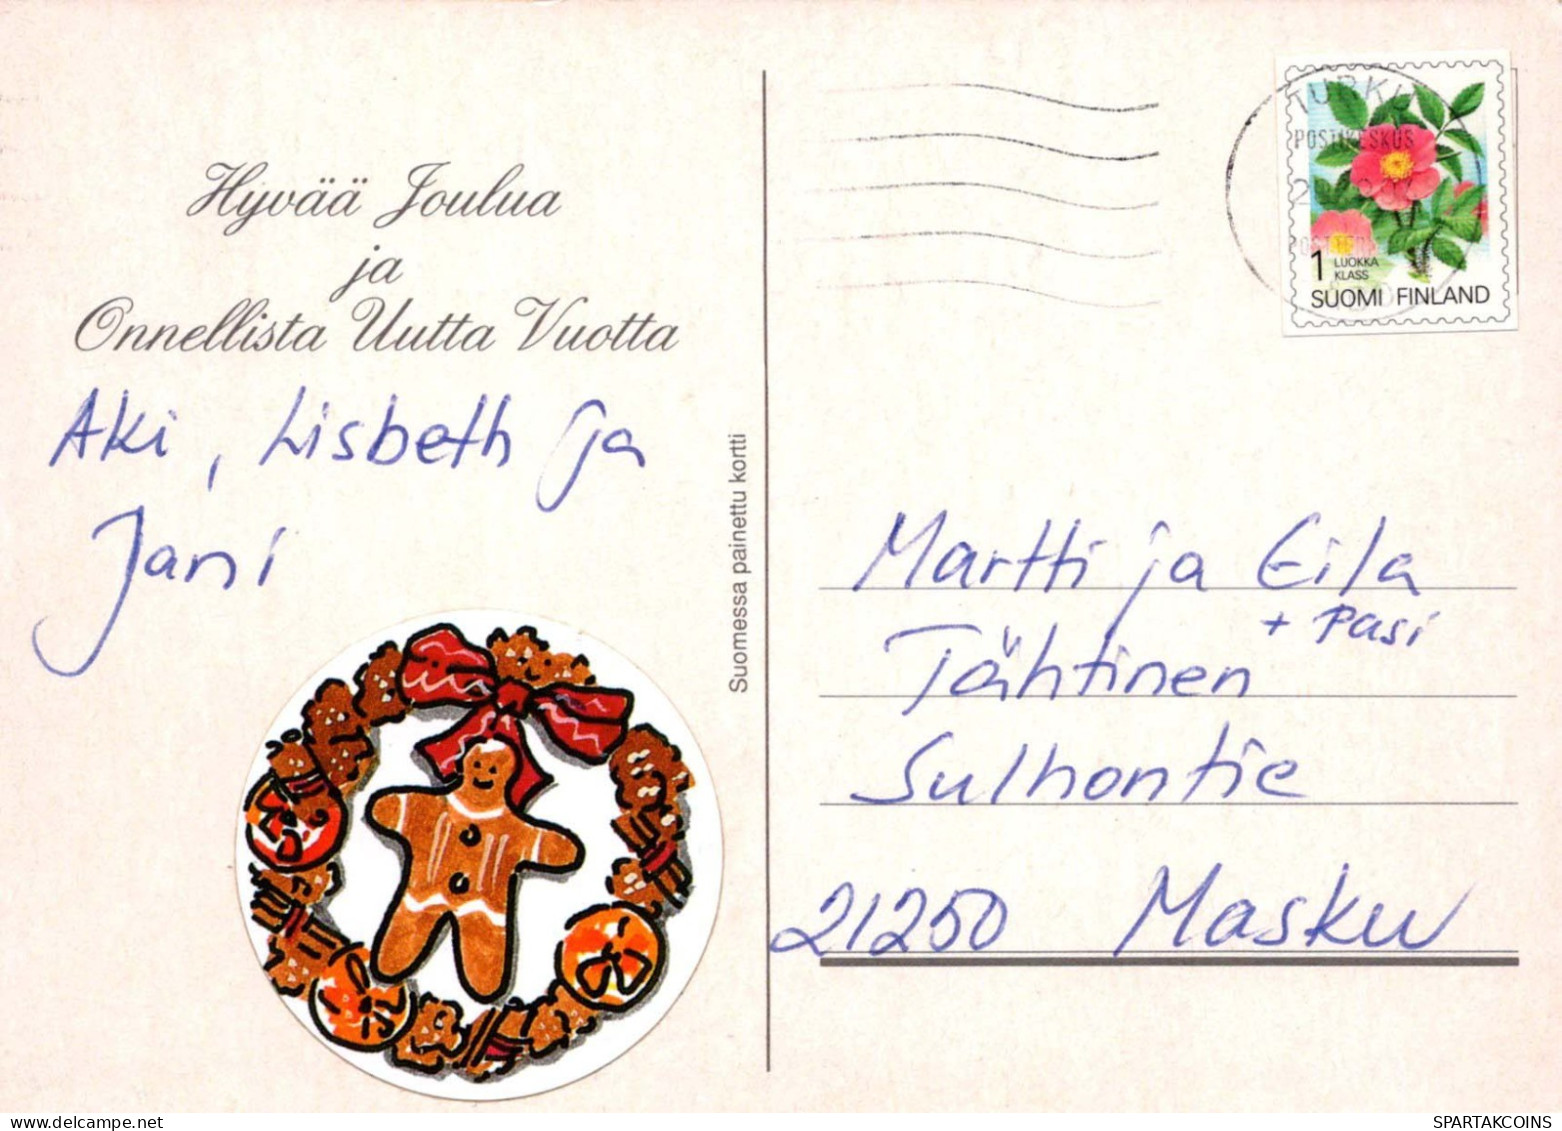 Hyvää Joulua
ja
Onnellista Uutta Vuotta
Aki, Lisbeth ja
Jani
Suomessa painettu kortti
TURKU
POSTIKESKUS
1 LUOKKA
KLASS
SUOMI FINLAND
Martti ja Eila
+ Pasi
Tähtinen
Sulhontie
21250 Masku
SPARTAKCOINS